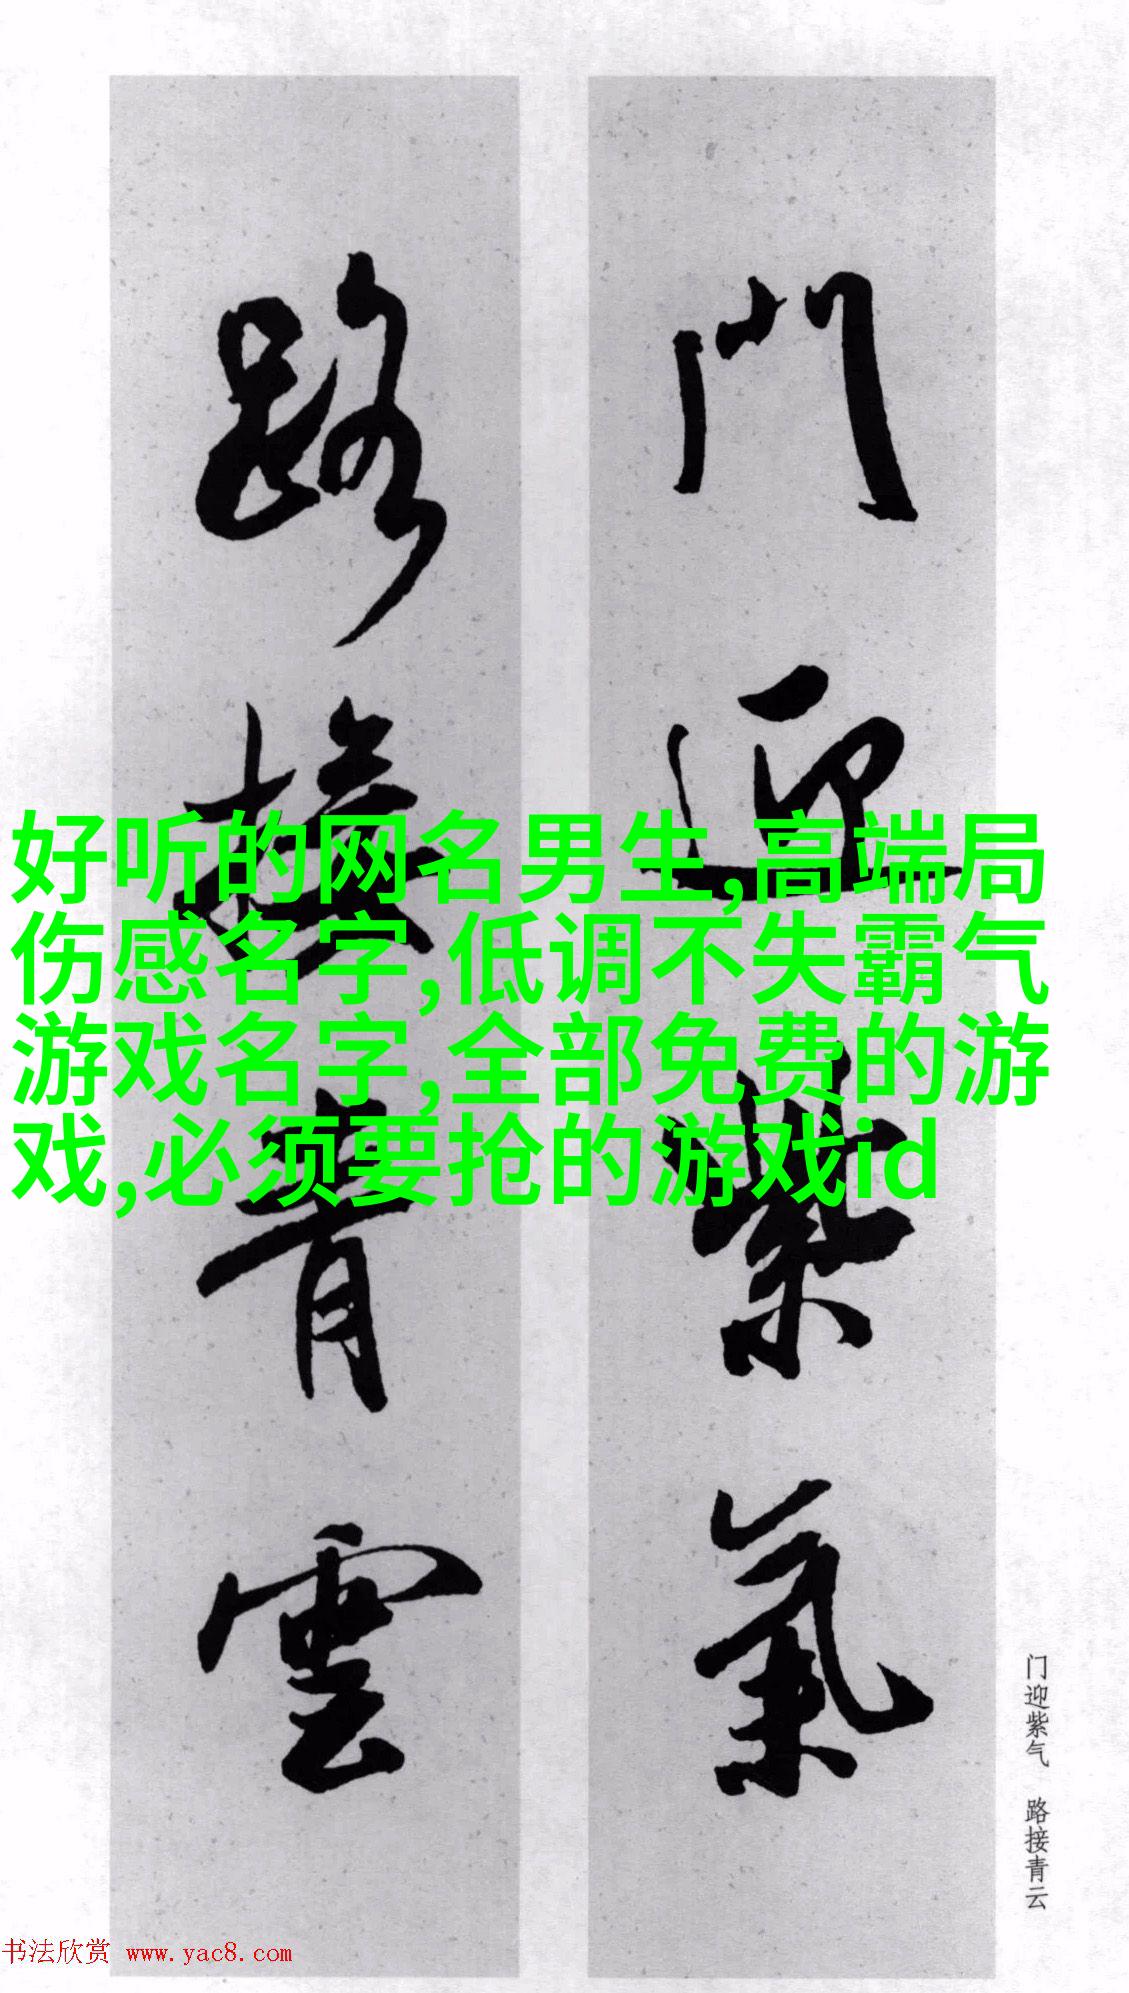 門迎紫氣
路接青雲
好听的网名男生,高端局
伤感名字,低调不失霸气
游戏名字,全部免费的游
戏,必须要抢的游戏id
门迎紫气 路接青云
书法欣赏 www.yac8.com